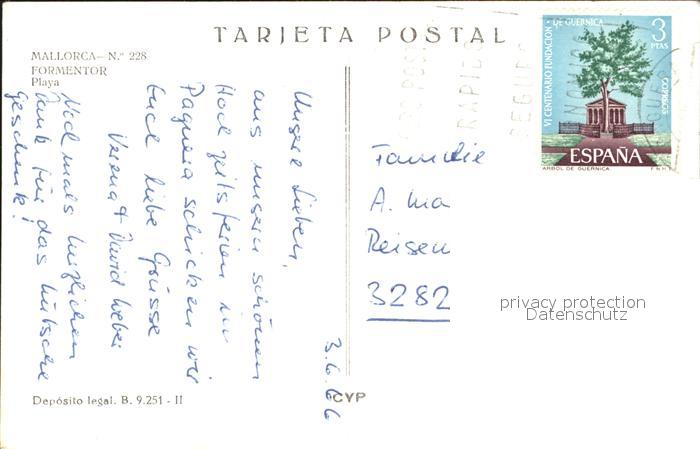 TARJETA POSTAL
MALLORCA—N.º 228
FORMENTOR
Playa
3.6.66
Unsere Lieben,
aus unsern schönen
Hochzeitsferien in
Paguera schicken wir
Euch liebe Grüsse
Verena & David Weber
Nochmals herzlichen
Dank für das hübsche
Geschenk!
Depósito legal. B. 9.251 - II
CYP
VI CENTENARIO FUNDACION DE GUERNICA
3
PTAS
CORREOS
ESPAÑA
ARBOL DE GUERNICA
F.N.M.T.
Familie
A. Ma
Reisen
3282
privacy protection
Datenschutz